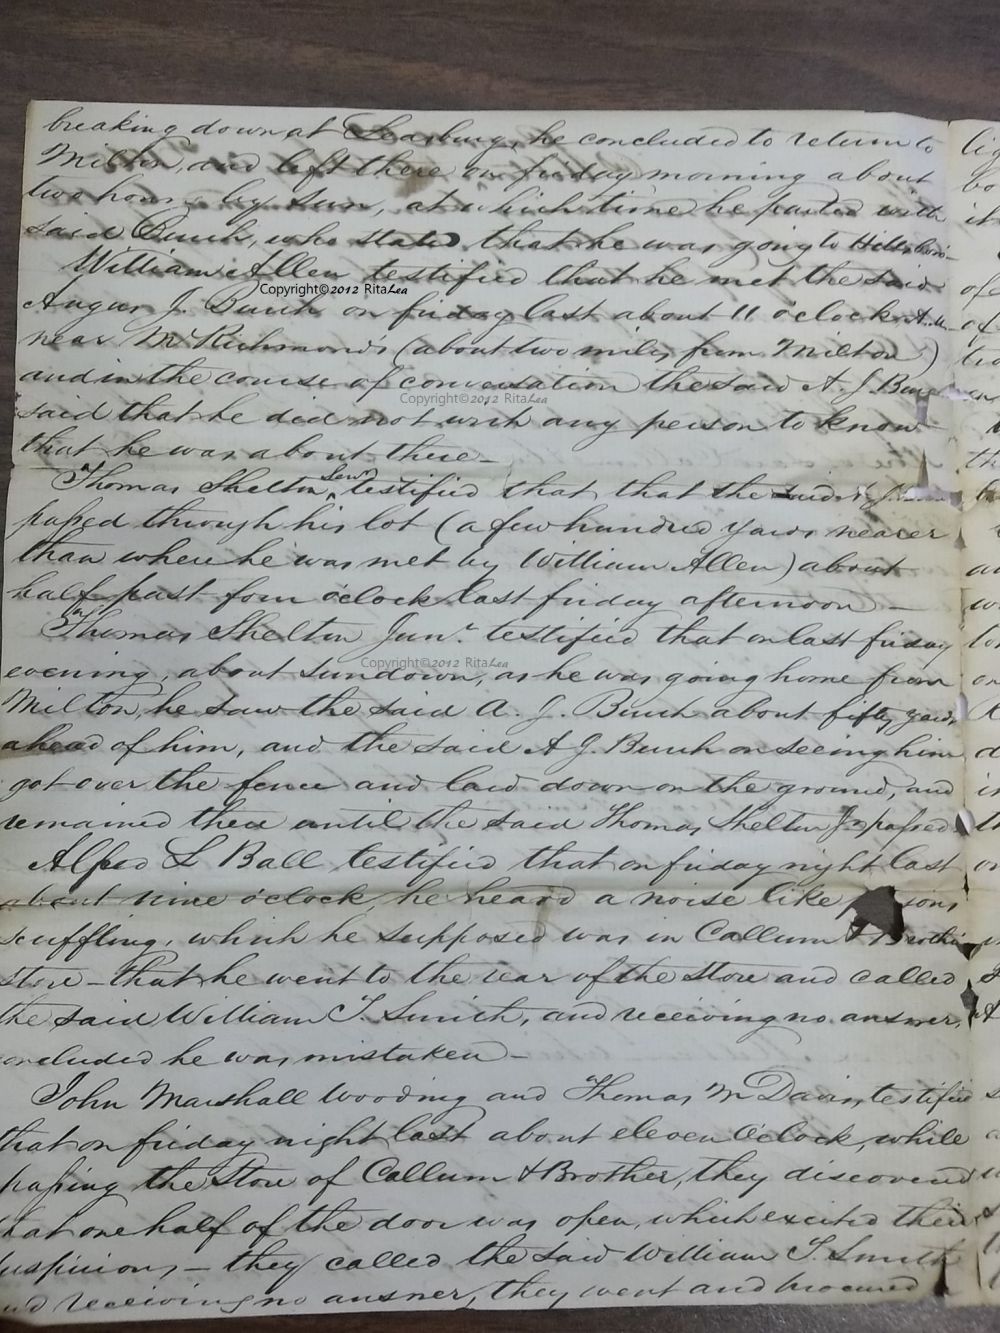 breaking down at Leasburg, he concluded to return to
Milton, and left there on friday morning about
two hours by sun, at which time he parted with
said Burch, who stated that he was going to Hillsboro-
William Allen testified that he met the said
Copyright©2012 RitaLea
Angus J. Burch on friday last about 11 o'clock A.M
near McRichmond's (about two miles from Milton)
and in the course of conversation the said A. J. Burch
Copyright©2012 RitaLea
said that he did not wish any person to know
that he was about there -
Thomas Shelton Senr. testified that that the said
passed through his lot (a few hundred yards nearer
than where he was met by William Allen) about
half past four o'clock last friday afternoon -
Thomas Shelton Junr. testified that on last friday
Copyright©2012 RitaLea
evening, about sundown, as he was going home from
Milton, he saw the said A. J. Burch about fifty yards
ahead of him, and the said A J. Burch on seeing him
got over the fence and laid down on the ground, and
remained there until the said Thomas Shelton Jr passed
Alfred L Ball testified that on friday night last
about nine o'clock, he heard a noise like
scuffling, which he supposed was in Callum & Brother
store - that he went to the rear of the store and called
the said William T. Smith, and receiving no answer,
oncluded he was mistaken -
John Marshall Wooding and Thomas M Davis, testified
that on friday night last about eleven O'clock, while
passing the store of Callum & Brother, they discovered
that one half of the door was open, which excited their
suspicions, - they called the said William T. Smith
and receiving no answer, they went and procured